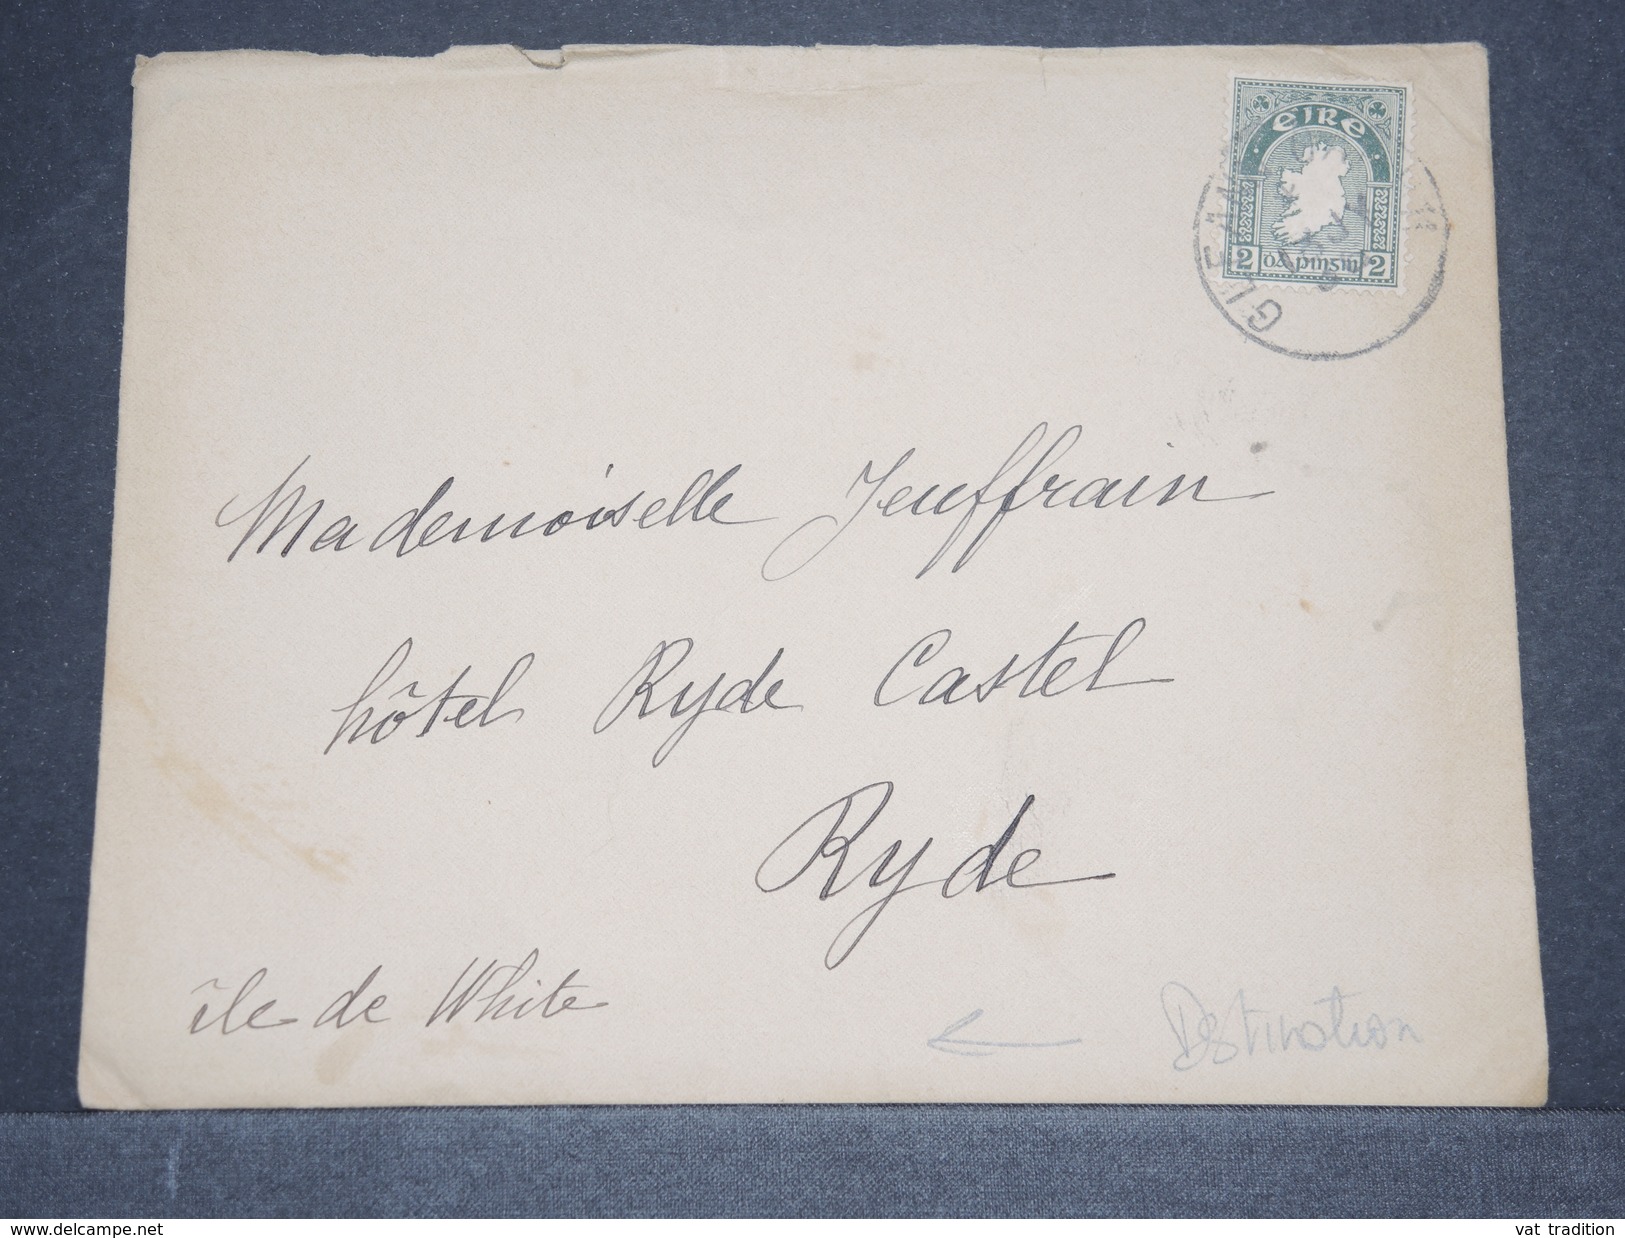 EIRE
2 dá pinsin 2
Mademoiselle Jeuffrain
hôtel Ryde Castel
Ryde
île de White
Destination
www.delcampe.net
vat tradition